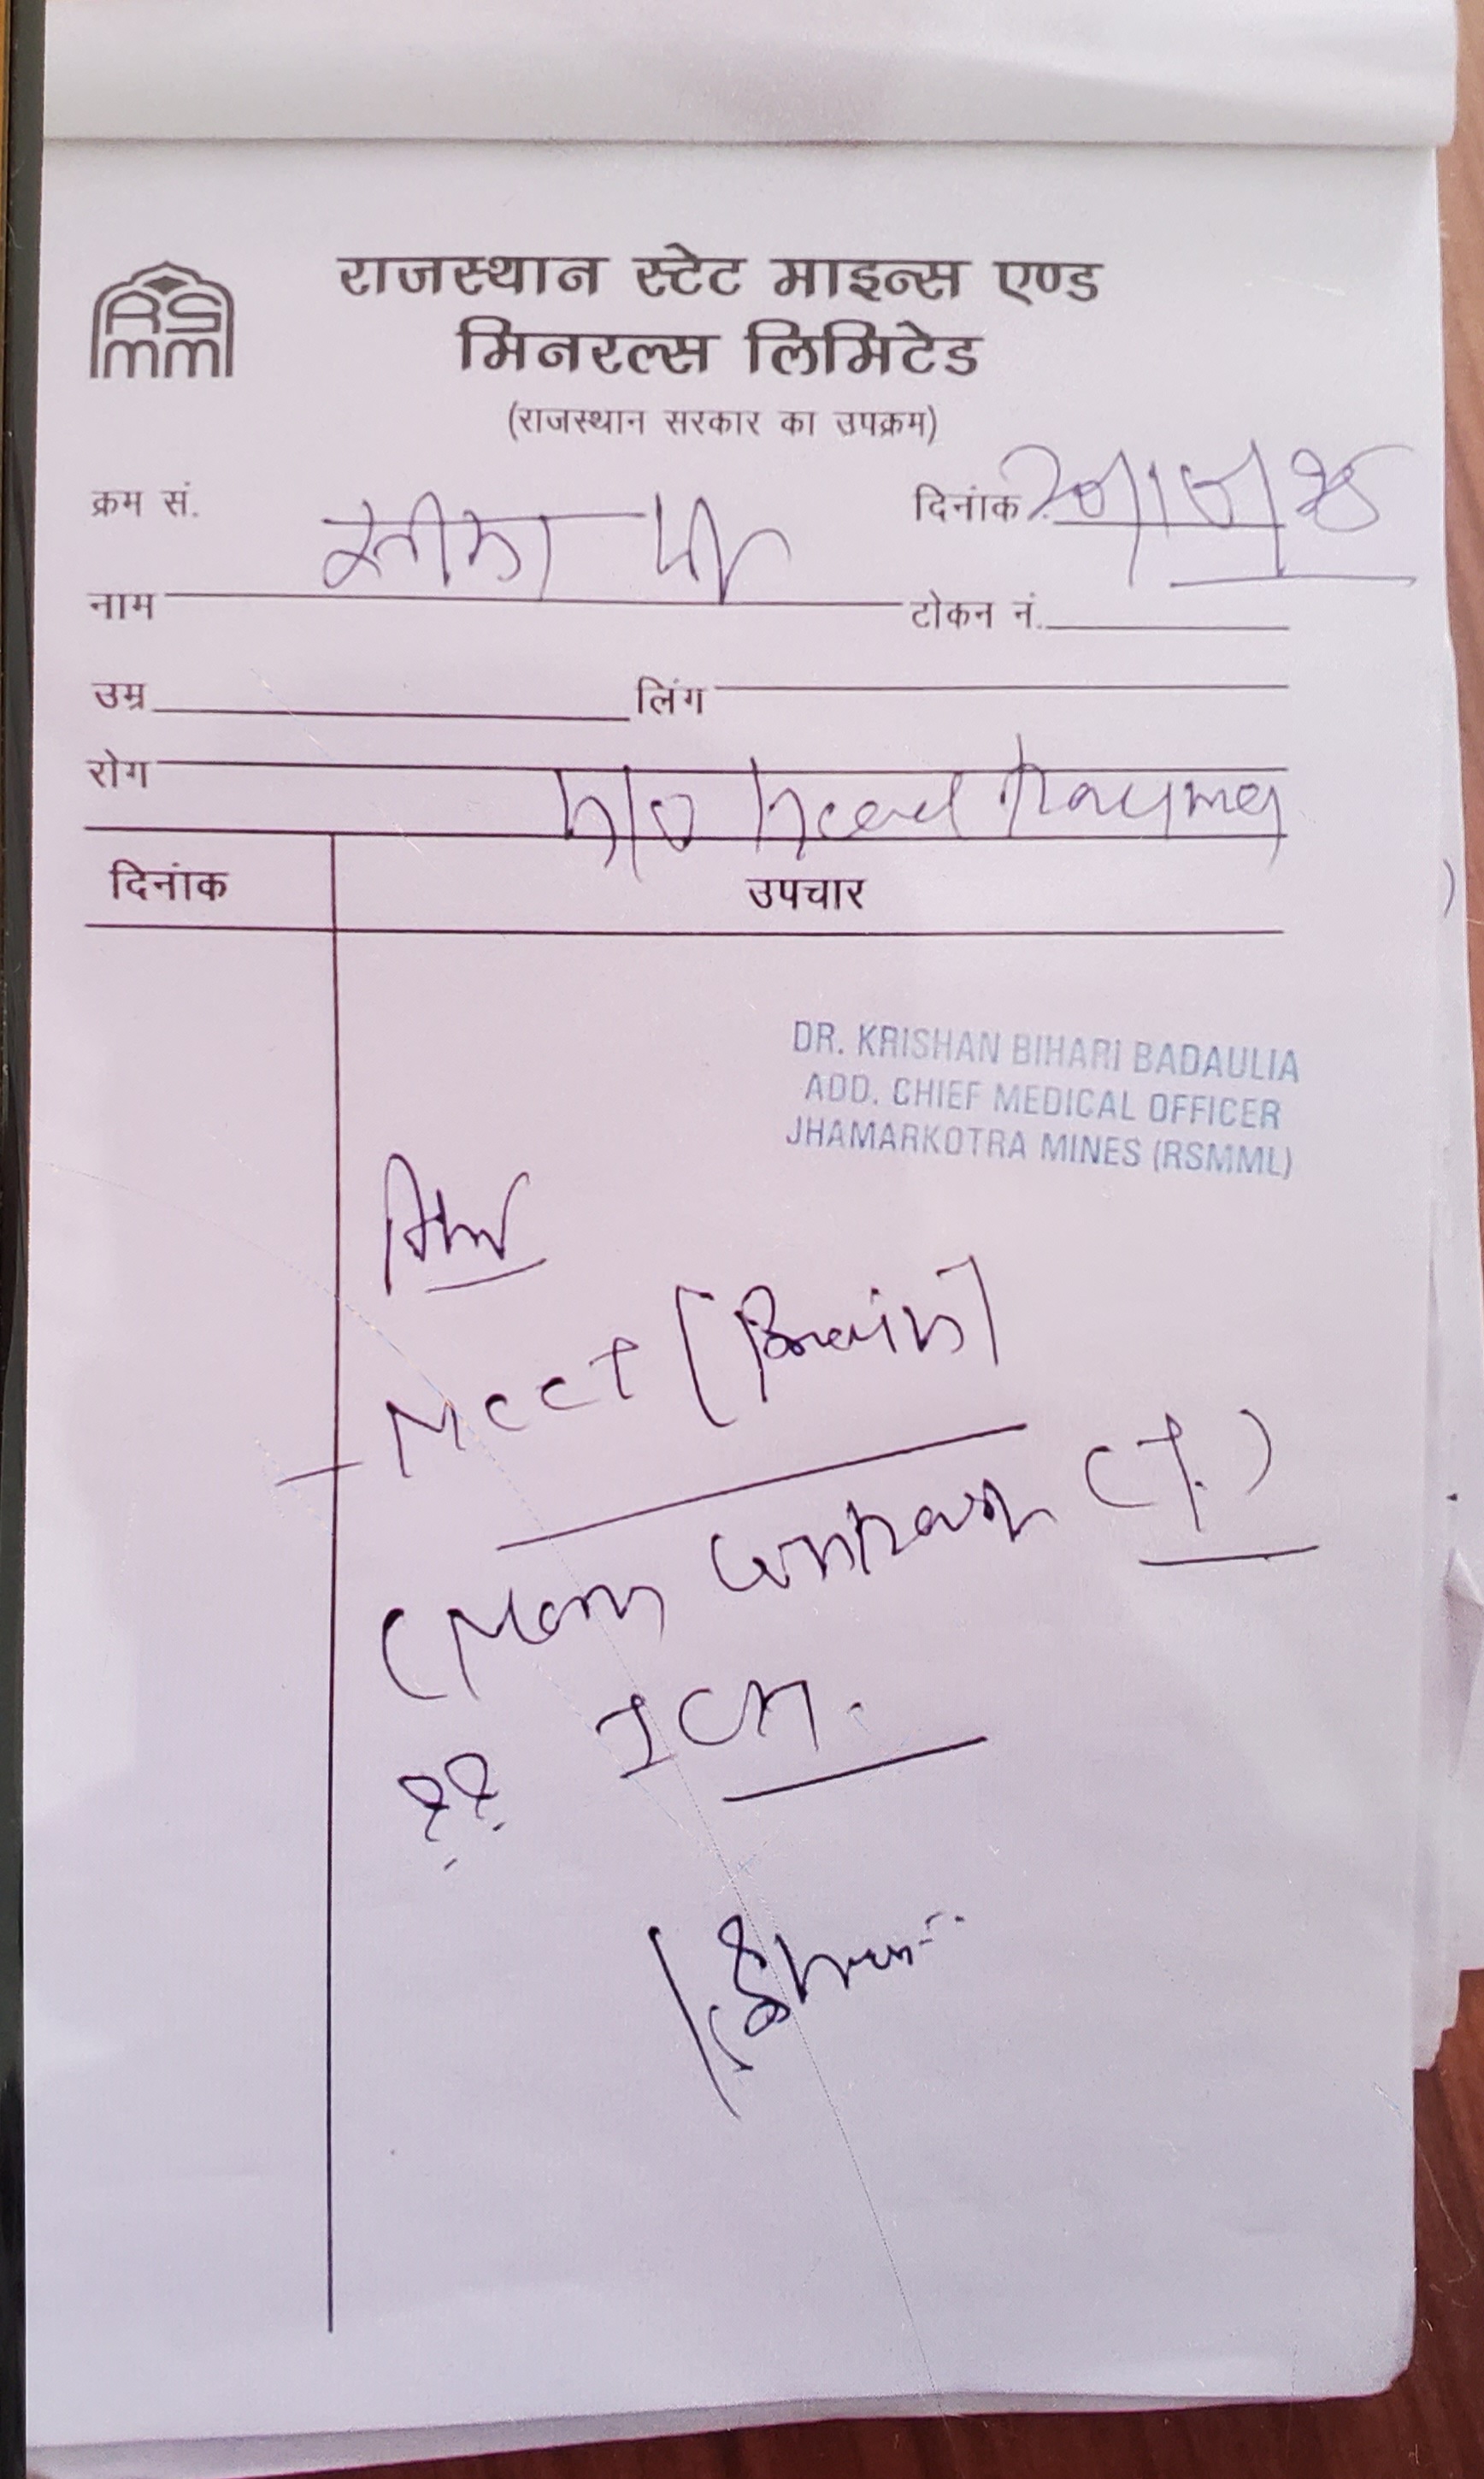 RS
mm
राजस्थान स्टेट माइन्स एण्ड
मिनरल्स लिमिटेड
(राजस्थान सरकार का उपक्रम)
क्रम सं. दिनांक
नाम टोकन नं.
उम्र लिंग
रोग h/o head trauma
दिनांक उपचार
DR. KRISHAN BIHARI BADAULIA
ADD. CHIEF MEDICAL OFFICER
JHAMARKOTRA MINES (RSMML)
Adv
NCCT [Brain]
(Non Contrast CT.)
?? ICH.